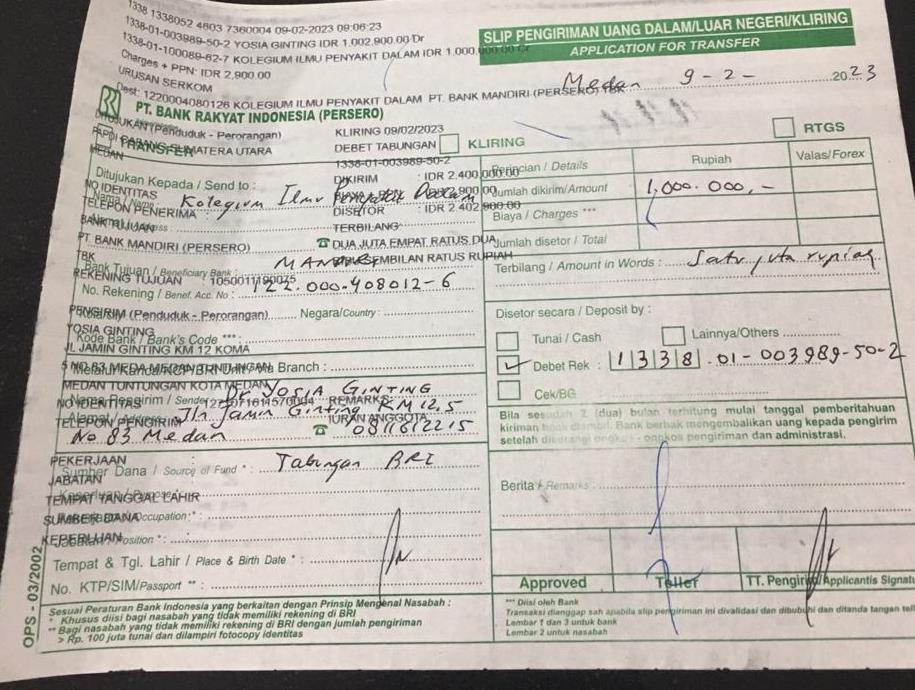 1338 1338052 4603 7360004 09-02-2023 09:06:23
1338-01-003989-50-2 YOSIA GINTING IDR 1.002.900.00 Dr
1338-01-100089-62-7 KOLEGIUM ILMU PENYAKIT DALAM IDR 1.000.000.00 Cr
Charges + PPN: IDR 2,900.00
URUSAN SERKOM
Dest: 1220004080126 KOLEGIUM ILMU PENYAKIT DALAM PT. BANK MANDIRI (PERSERO) TBK
SLIP PENGIRIMAN UANG DALAM/LUAR NEGERI/KLIRING
APPLICATION FOR TRANSFER
Medan 9-2- 2023
PT. BANK RAKYAT INDONESIA (PERSERO)
(Penduduk - Perorangan)
KLIRING 09/02/2023
DEBET TABUNGAN
KLIRING
RTGS
TRANSFER
SUMATERA UTARA
MEDAN
1338-01-003989-50-2
Perincian / Details
Rupiah
Valas/Forex
Ditujukan Kepada / Send to :
DIKIRIM : IDR 2.400,000.00
NO IDENTITAS
Kolegium Ilmu Penyakit Dalam
Jumlah dikirim/Amount
1.000.000,-
TELEPON PENERIMA :
DISETOR : IDR 2.402,900.00
Biaya / Charges ***
BANK TUJUAN
TERBILANG
PT. BANK MANDIRI (PERSERO)
TBK
DUA JUTA EMPAT RATUS DUA
SEMBILAN RATUS RUPIAH
Jumlah disetor / Total
Bank Tujuan / Beneficiary Bank :
MANDIRI
Terbilang / Amount in Words : Satu juta rupiah
REKENING TUJUAN
No. Rekening / Benef. Acc. No : 122.000-408012-6
PENGIRIM (Penduduk - Perorangan)
Negara/Country :
Disetor secara / Deposit by :
YOSIA GINTING
Kode Bank / Bank's Code *** :
Tunai / Cash
Lainnya/Others
JL JAMIN GINTING KM 12 KOMA
Debet Rek : 1338.01-003989-50-2
Branch :
MEDAN TUNTUNGAN KOTA MEDAN
Cek/BG
Dr Yosia GINTING
NO IDENTITAS
REMARKS:
IURAN ANGGOTA
Jln Jamin Ginting KM 12,5
TELEPON PENGIRIM
No 83 Medan
0811612215
Bila sesudah 2 (dua) bulan terhitung mulai tanggal pemberitahuan
kiriman tidak diambil. Bank berhak mengembalikan uang kepada pengirim
setelah dikurangi ongkos - ongkos pengiriman dan administrasi.
PEKERJAAN
Sumber Dana / Source of Fund * : Tabungan BRI
JABATAN
TEMPAT TANGGAL LAHIR
Berita / Remarks :
SUMBER DANA
Occupation * :
KEPERLUAN
Position * :
Tempat & Tgl. Lahir / Place & Birth Date * :
No. KTP/SIM/Passport ** :
Approved
Teller
TT. Pengirim/Applicantis Signat
OPS - 03/2002
Sesuai Peraturan Bank Indonesia yang berkaitan dengan Prinsip Mengenal Nasabah :
* Khusus diisi bagi nasabah yang tidak memiliki rekening di BRI
** Bagi nasabah yang tidak memiliki rekening di BRI dengan jumlah pengiriman
> Rp. 100 juta tunai dan dilampiri fotocopy identitas
*** Diisi oleh Bank
Transaksi dianggap sah apabila slip pengiriman ini divalidasi dan dibubuhi dan ditanda tangan tell
Lembar 1 dan 3 untuk bank
Lembar 2 untuk nasabah